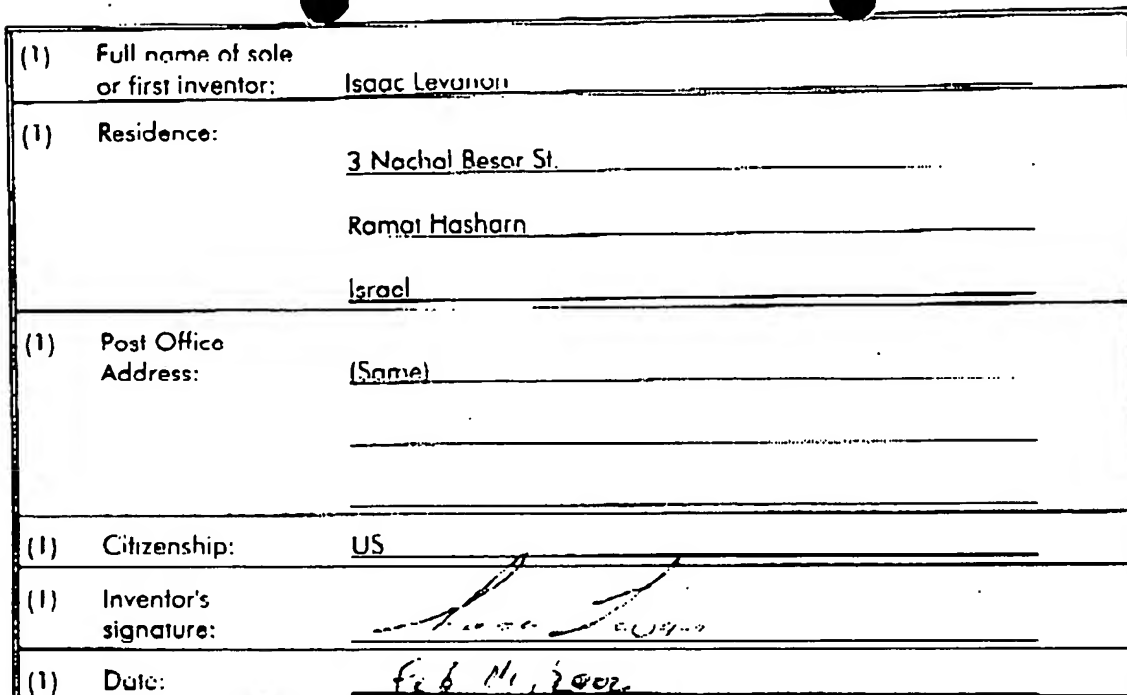 (1) Full name of sole
or first inventor: Isaac Levanon
(1) Residence:
3 Nachal Besor St.
Ramat Hasharn
Israel
(1) Post Office
Address: (Same)
(1) Citizenship: US
(1) Inventor's
signature:
(1) Date: Feb 2002